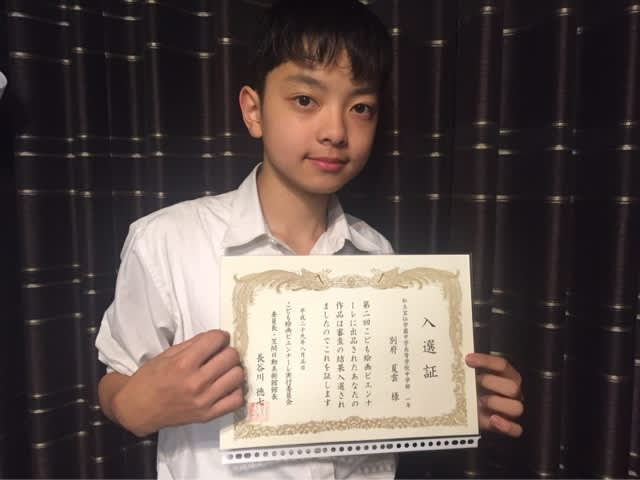 入選証
中学高等学校中学部 一年
別府 夏雲 様
第二回こども絵画ビエンナ
ーレに出品されたあなたの
作品は審査の結果入選され
ましたのでこれを証します
平成二十九年八月五日
こども絵画ビエンナーレ実行委員会
委員長・笠間日動美術館館長
長谷川 徳七